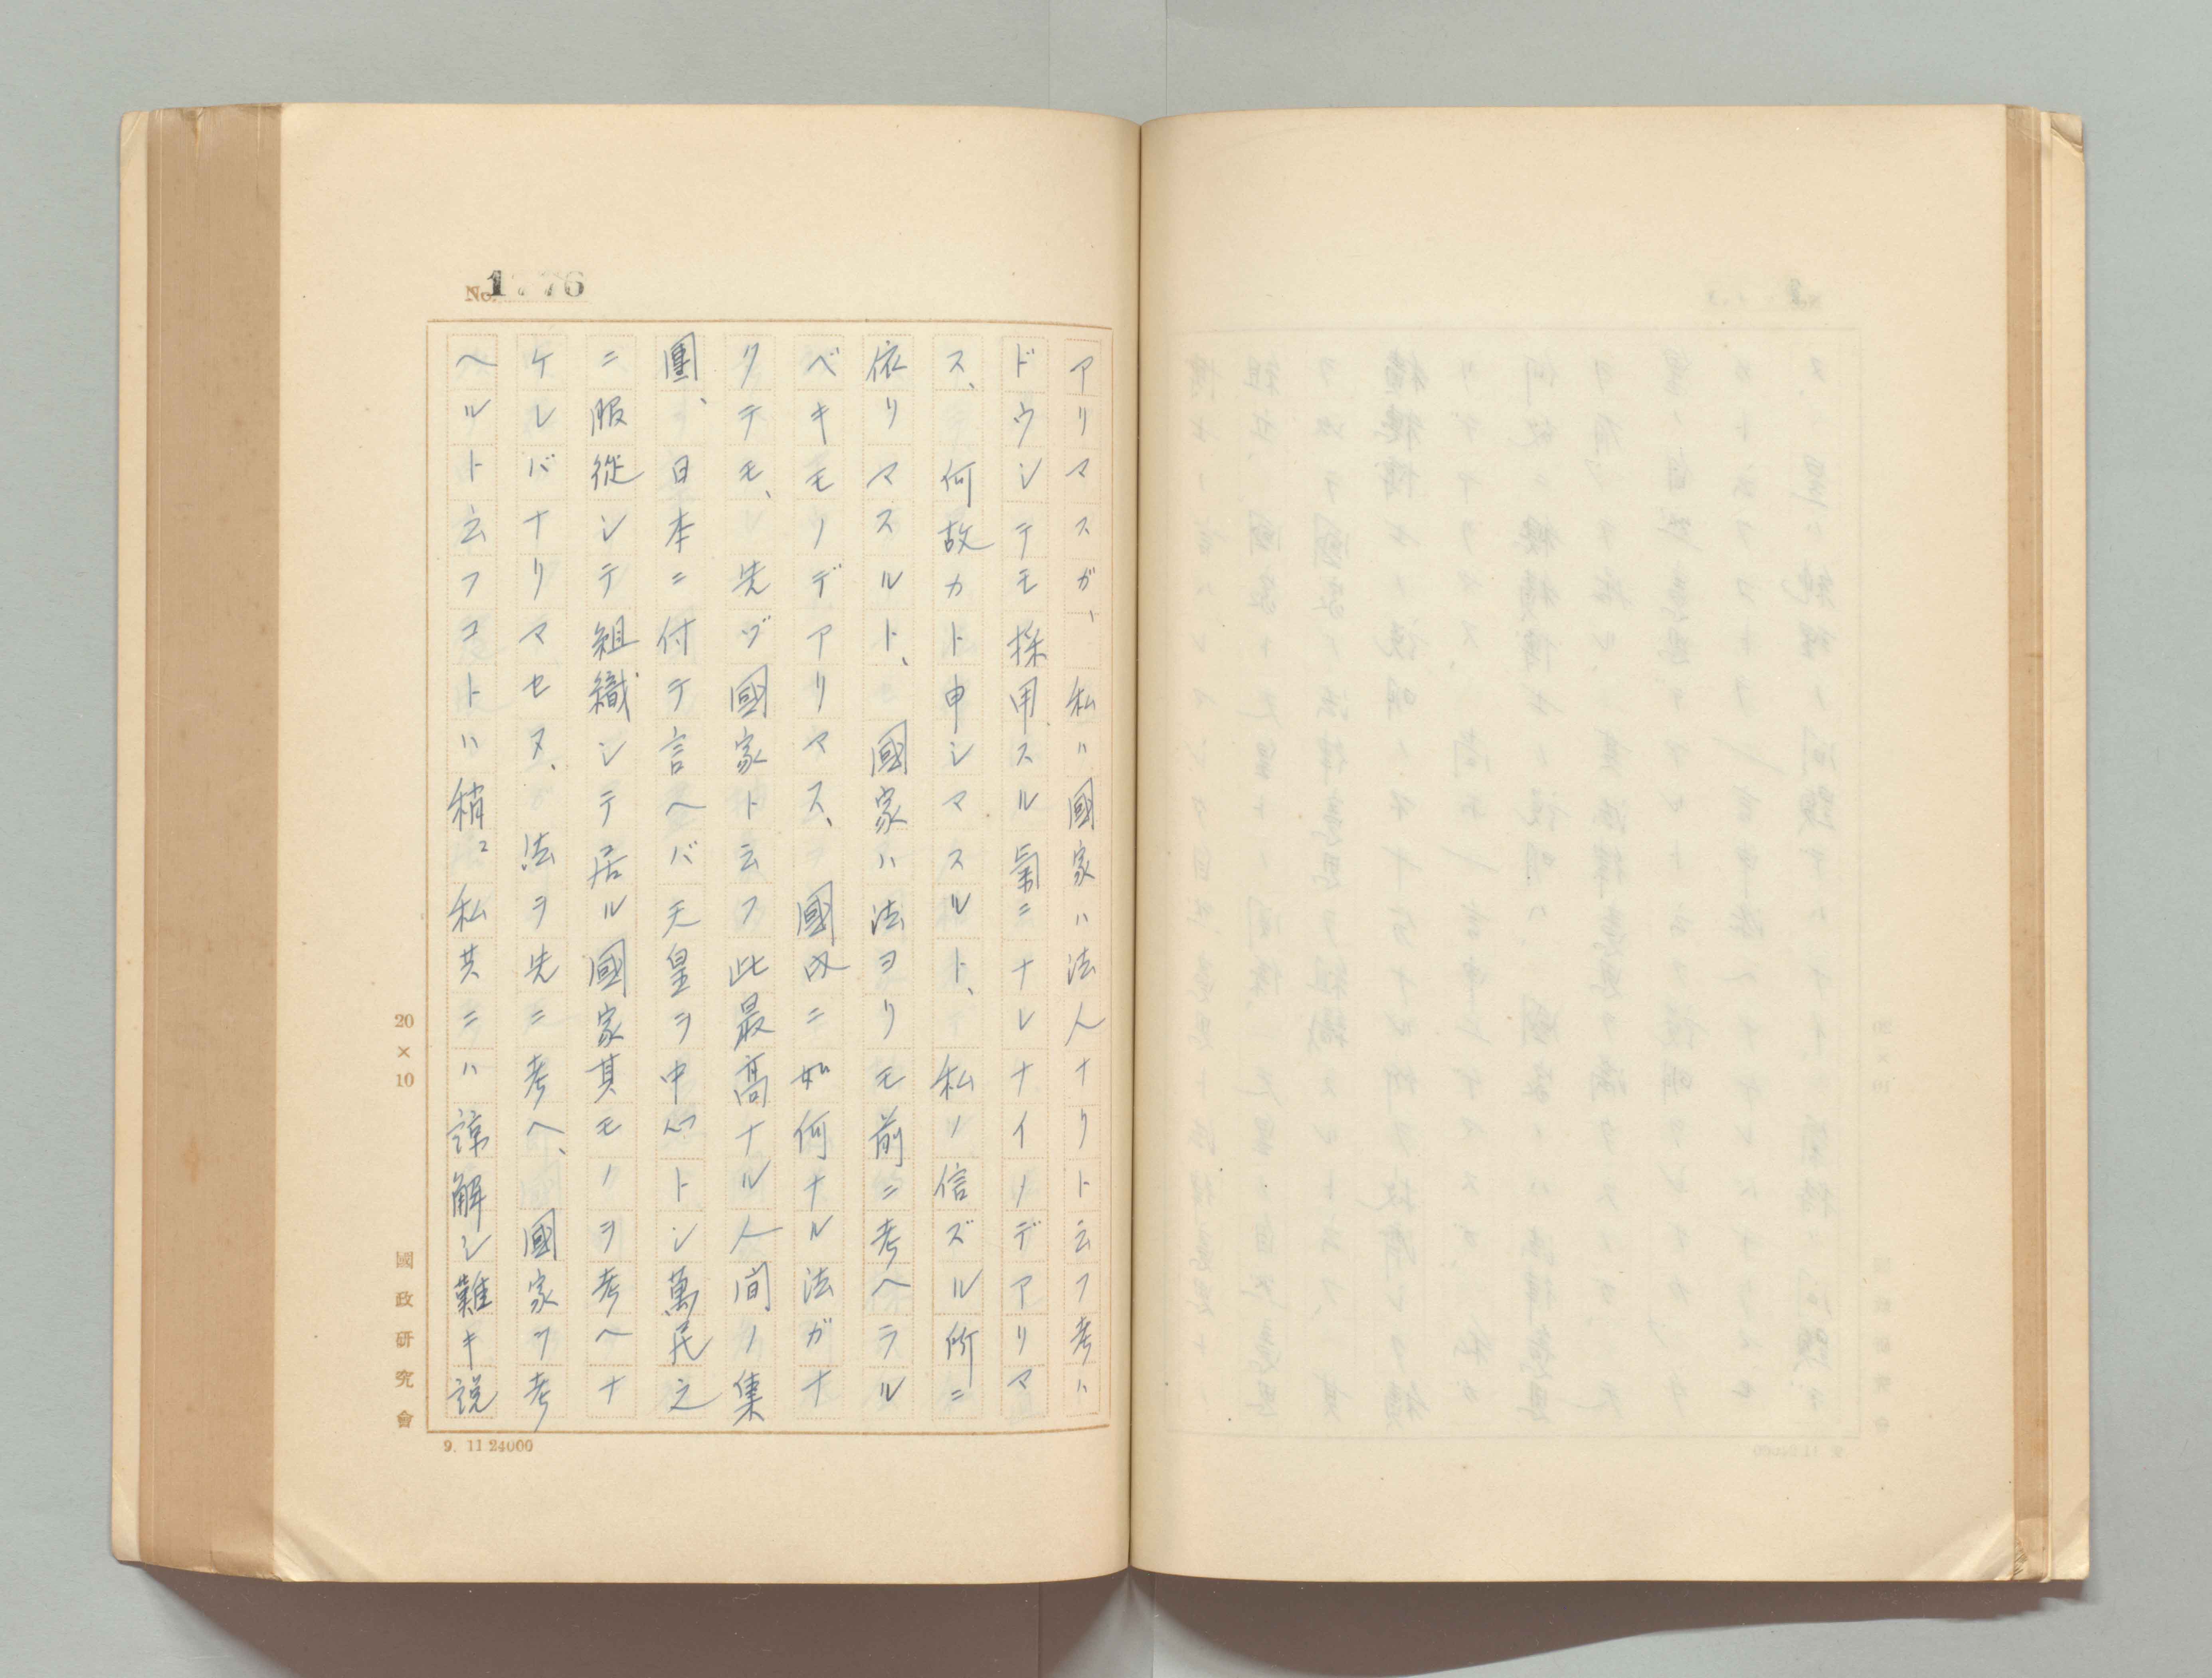 No. 1776
アリマスガ、私ハ國家ハ法人ナリト云フ考ハ
ドウシテモ採用スル氣ニナレナイノデアリマ
ス、何故カト申シマスルト、私ノ信ズル所ニ
依リマスルト、國家ハ法ヨリモ前ニ考ヘラル
ベキモノデアリマス、國內ニ如何ナル法ガナ
クテモ、先ヅ國家ト云フ此最高ナル人間ノ集
團、日本ニ付テ言ヘバ天皇ヲ中心トシ萬民之
ニ服從シテ組織シテ居ル國家其モノヲ考ヘナ
ケレバナリマセヌ、法ヲ先ニ考ヘ、國家ヲ考
ヘルト云フコトハ稍〻私共ニハ諒解シ難キ説
20×10
國政研究會
9. 11 24000